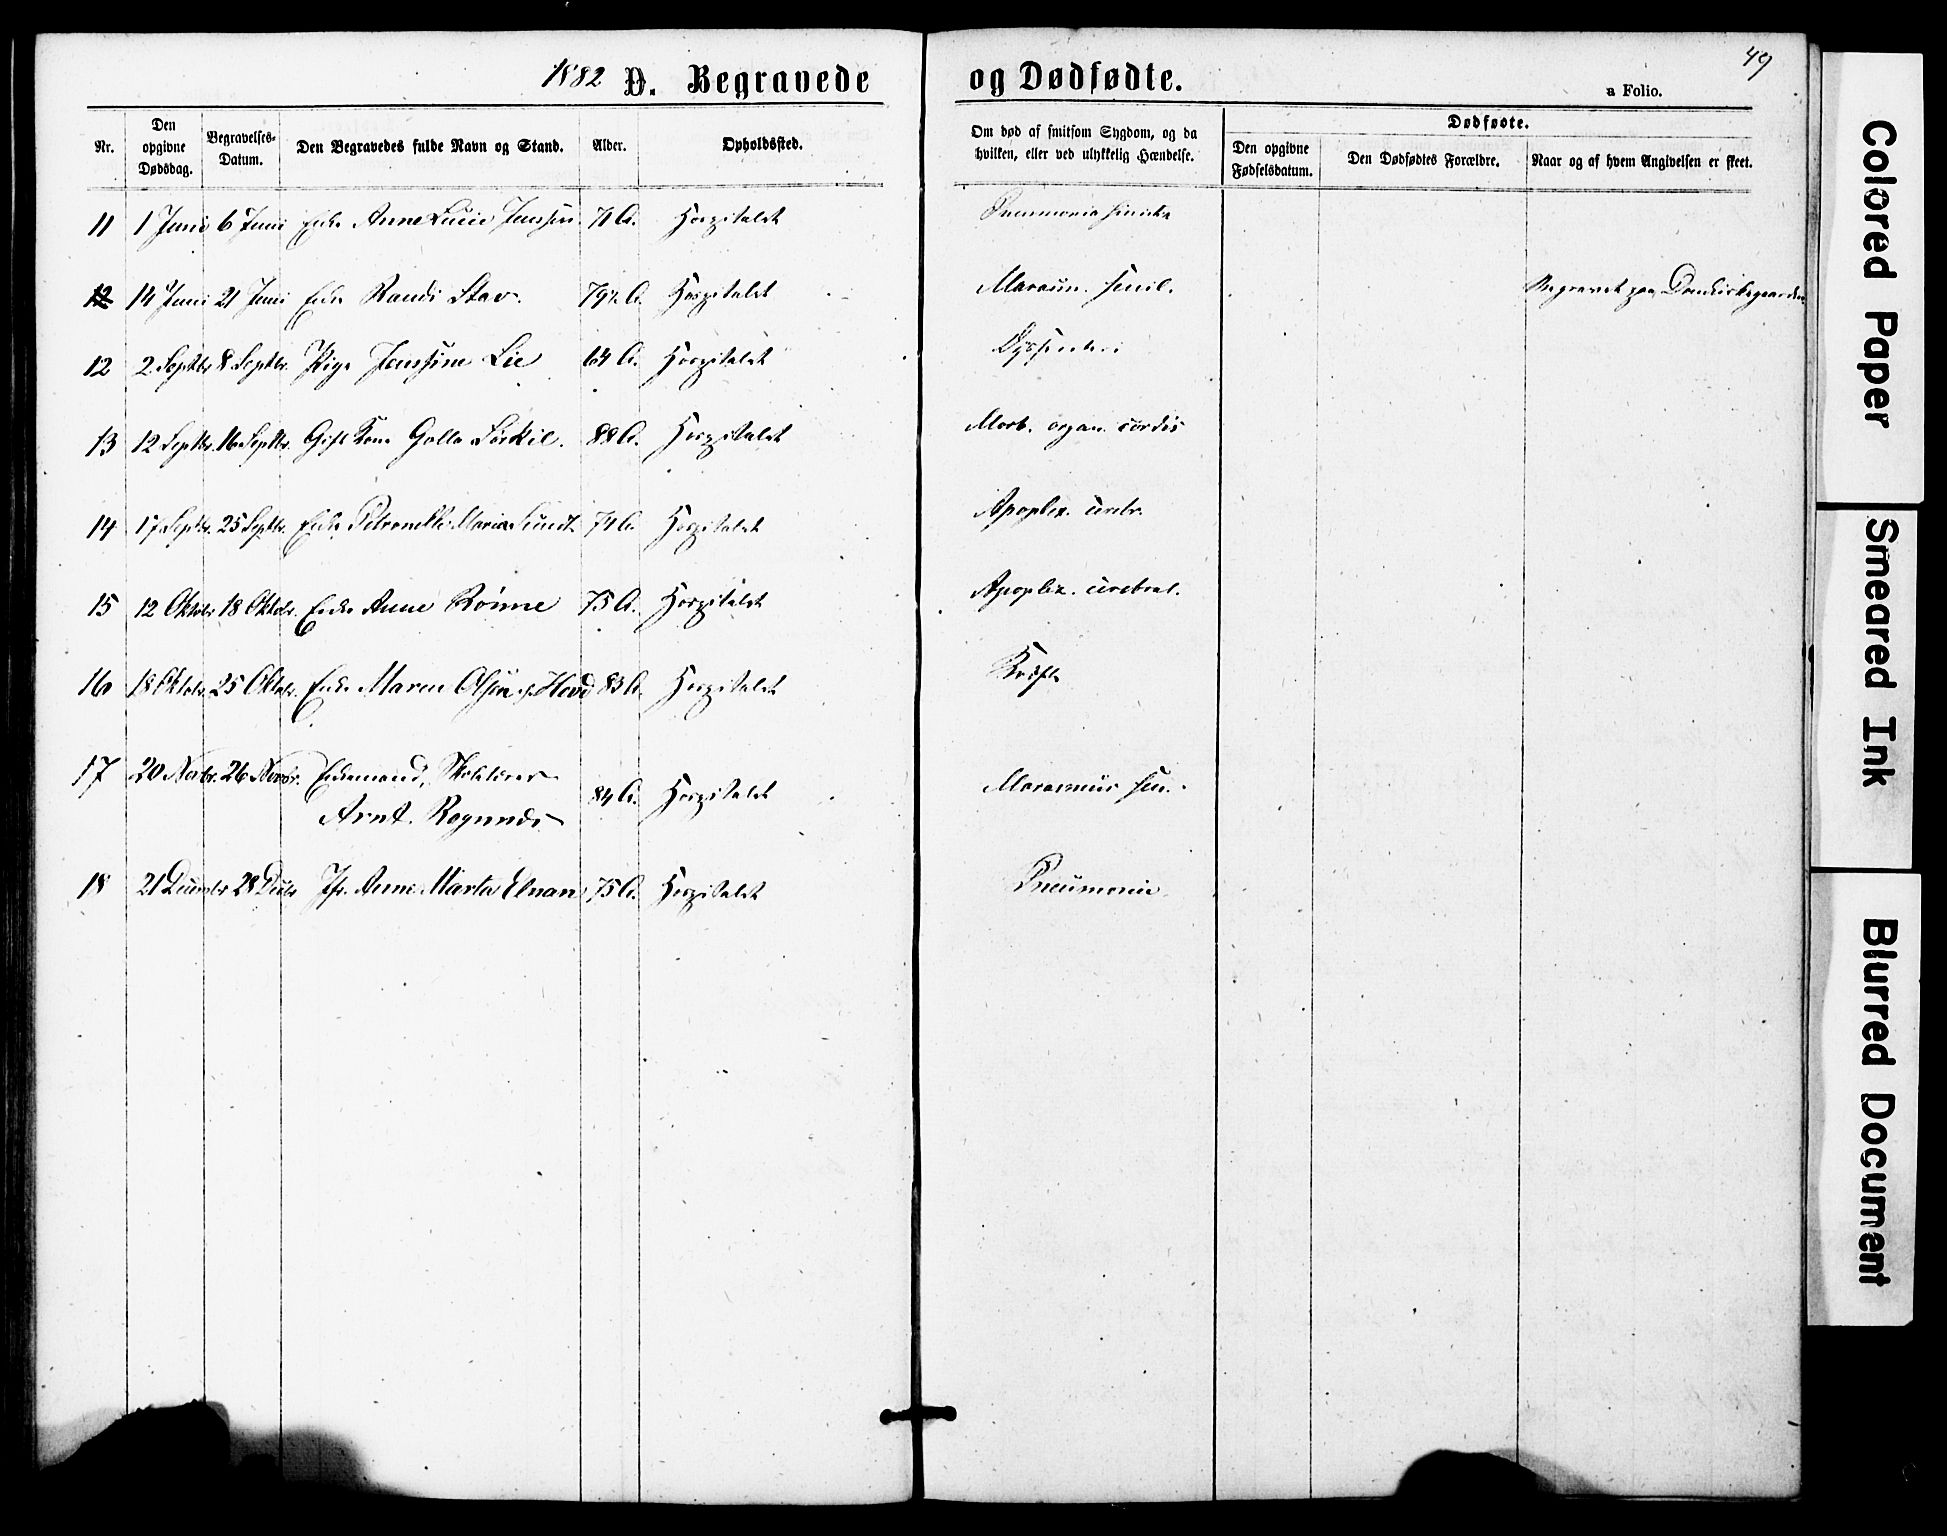 1882 D. Begravede og Dødfødte. 49
a Folio.
Nr. Den opgivne Dødsdag. Begravelses-Datum. Den Begravedes fulde Navn og Stand. Alder. Opholdssted. Om død af smitsom Sygdom, og da hvilken, eller ved ulykkelig Hændelse. Dødfødte. Den opgivne Fødselsdatum. Den Dødfødtes Forældre. Naar og af hvem Angivelsen er skeet.
11 1 Juni 6 Juni Enke Anne Lucie Jenssen 71 A. Hospitalet Pneumonia sinistr
12 14 Juni 21 Juni Enke Randi Stav. 79½ A. Hospitalet Marasm. senil. Begravet paa Domkirkegaarden
12 2 Septbr 8 Septbr. Pige Jenssine Lie 64 A. Hospitalet Dyssenteri
13 12 Septbr. 16 Septbr. Gift Kone Golla 88 A. Hospitalet Morb. organ. cordis
14 17 Septbr. 25 Septbr. Enke Petronelle Maria Sundt 74 A. Hospitalet Apoplex. cerebr.
15 12 Oktobr 18 Oktobr. Enke Anne Rönne 75 A. Hospitalet Apoplex. cerebral.
16 18 Oktobr. 25 Oktobr. Enke Maren Olsen Hovd 83 A. Hospitalet Kræft
17 20 Novbr. 26 Novbr. Enkemand, Skolelærer
Arnt. Rognnæs 84 A. Hospitalet Marasmus sen.
18 21 Decembr 28 Decbr Jfr. Anne Marta Elnan 75 A. Hospitalet Pneumonie
Colored Paper
Smeared Ink
Blurred Document